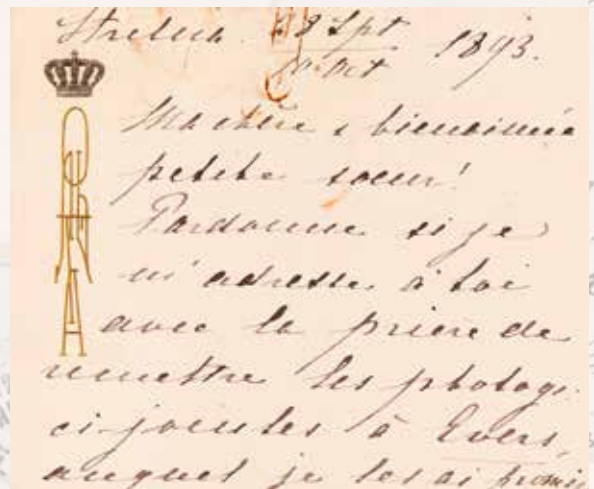 Strelna. 28 Spt 1893.
10 Oct
Ma chère & bienaimée
petite soeur!
Pardonne si je
m'adresse à toi
avec la prière de
remettre les photogr.
ci-jointes à Evers,
auquel je les ai promis